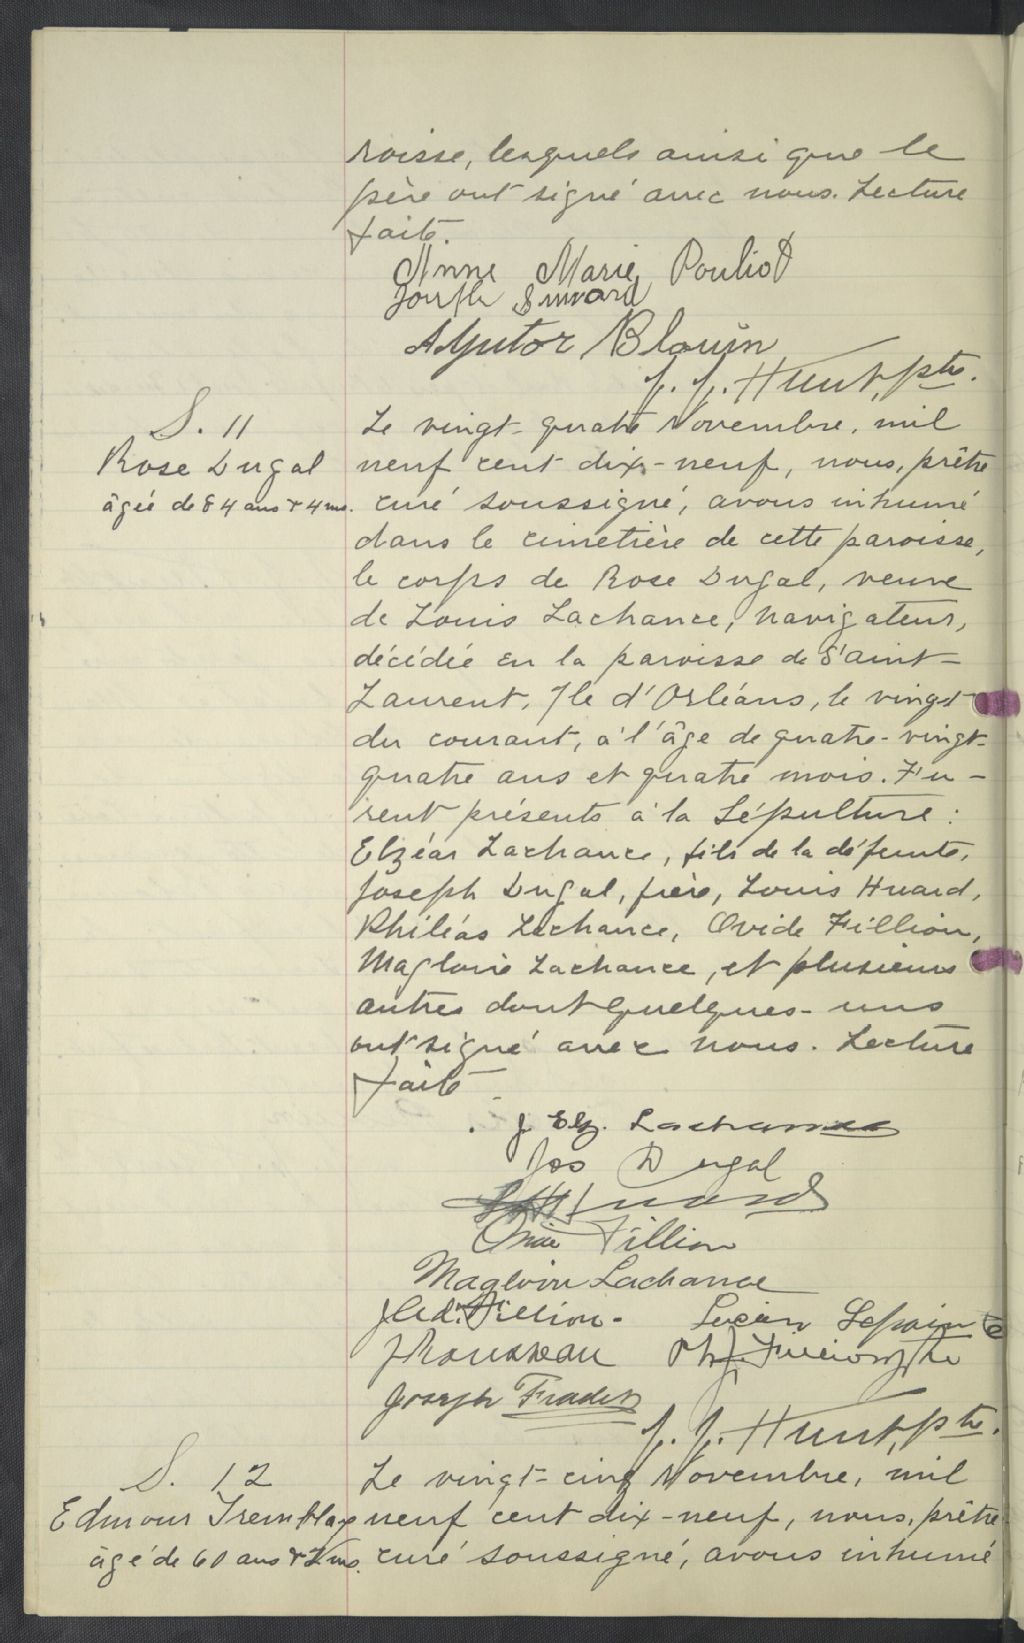 roisse, lesquels ainsi que le
père ont signé avec nous. Lecture
faite.
Anne Marie Pouliot
Joseph Simard
Adjutor Blouin
J. J. Hunt, ptre.
S. 11
Rose Dugal
âgée de 84 ans & 4 ms.
Le vingt-quatre Novembre, mil
neuf cent dix-neuf, nous, prêtre
curé soussigné, avons inhumé
dans le cimetière de cette paroisse,
le corps de Rose Dugal, veuve
de Louis Lachance, navigateur,
décédée en la paroisse de Saint-
Laurent, Ile d'Orléans, le vingt
du courant, à l'âge de quatre-vingt-
quatre ans et quatre mois. Fu-
rent présents à la Sépulture :
Elzéar Lachance, fils de la défunte,
Joseph Dugal, frère, Louis Huard,
Philéas Lachance, Ovide Fillion,
Magloire Lachance, et plusieurs
autres dont quelques-uns
ont signé avec nous. Lecture
faite
J. Elz. Lachance
Jos Dugal
Huard
Ovide Fillion
Magloire Lachance
Fillion. Lucien Lapointe
J Rousseau Ph. J. Fillion Ptre
Joseph Fradet
J. J. Hunt, ptre.
S. 12
Edmour Tremblay
âgé de 60 ans & ms.
Le vingt-cinq Novembre, mil
neuf cent dix-neuf, nous, prêtre
curé soussigné, avons inhumé